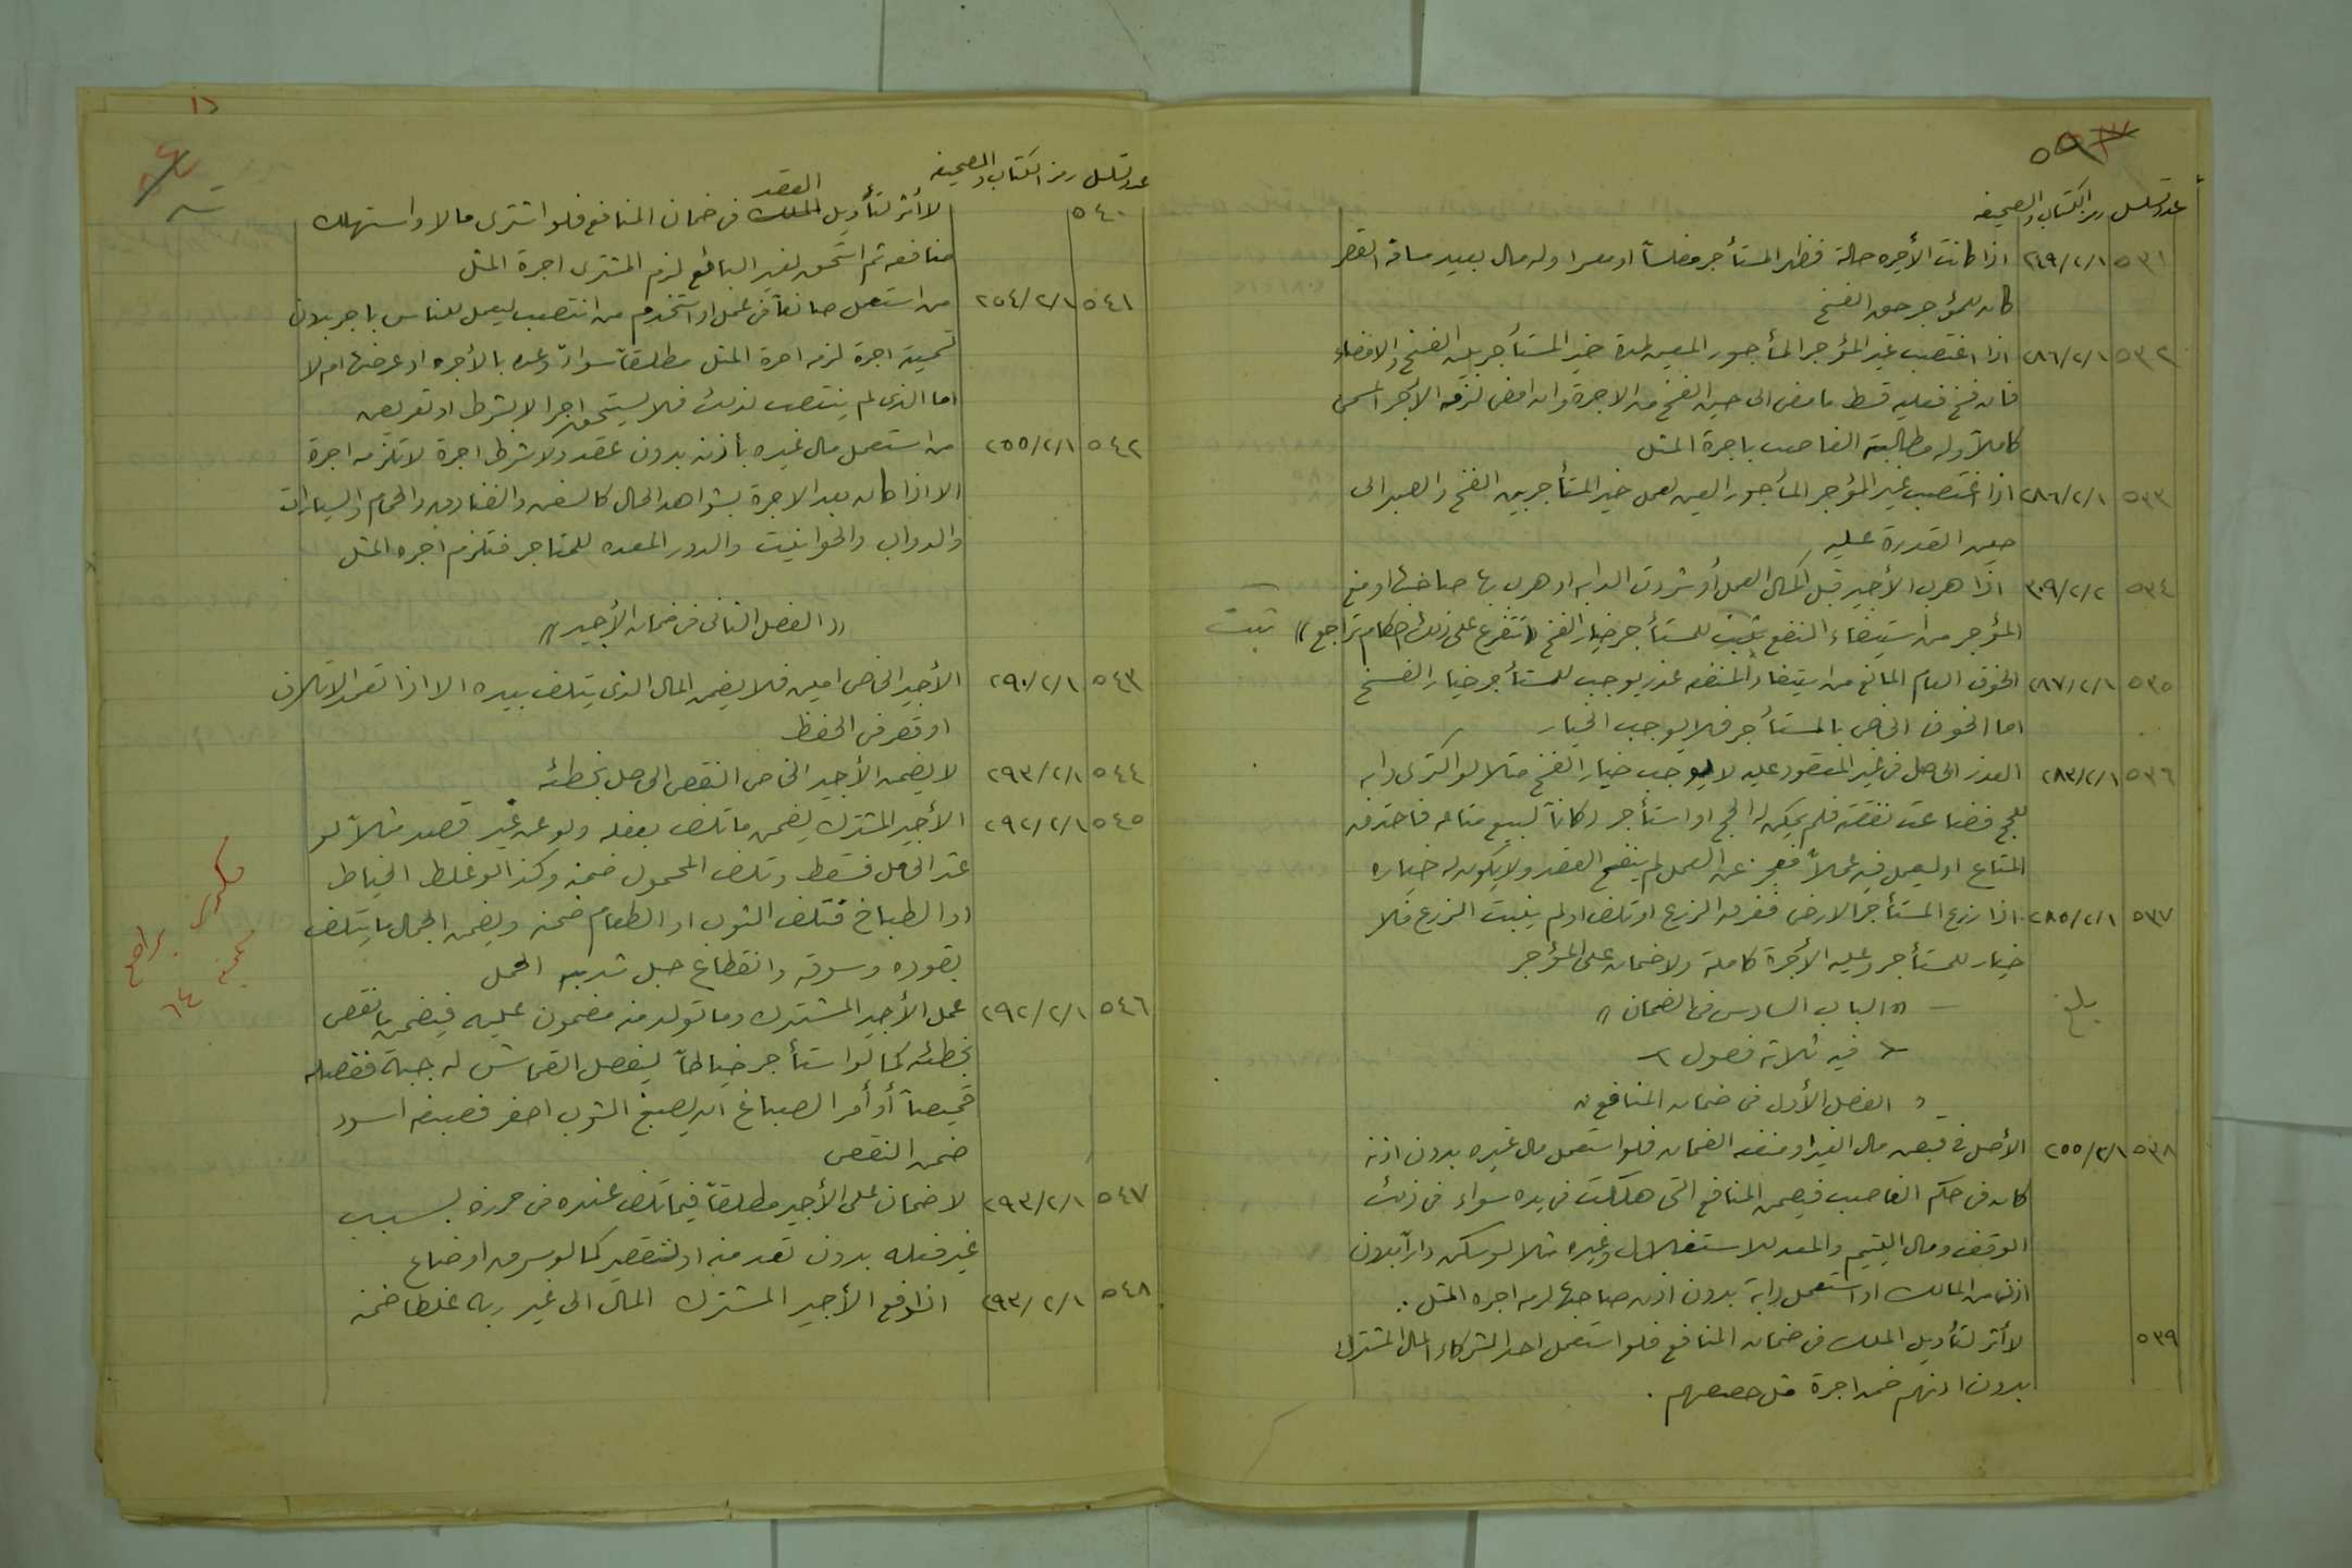 ٥٩
عدد تسلسل رمز الكتاب والصحيفه
٥٣١ ٢٦٩/٢/١ اذا كانت الأجره حالة فظهر المستأجر مفلساً او معسرا وله مال بعيد مسافة القصر
كان للمؤجر حق الفسخ
٥٣٢ ٢٨٦/٢/١ اذا اغتصب غير المؤجر المأجور المعين لمدة خير المستأجر بين الفسخ والامضاء
فان فسخ فعليه قسط ما مضى الى حين الفسخ من الاجرة وان امضى لزمه الأجر المسمى
كاملاً وله مطالبة الغاصب باجرة المثل
٥٣٣ ٢٨٦/٢/١ اذا اغتصب غير المؤجر المأجور المعين لعمل خير المستأجر بين الفسخ والصبر الى
حين القدرة عليه
٥٣٤ ٣٠٩/٢/٢ اذا هرب الأجير قبل اكمال العمل أو شردت الدابه او هرب بها صاحبها او منع
المؤجر من استيفاء المنفع يثبت للمستأجر خيار الفسخ (( تتفرع على ذلك احكام تراجع )) تثبت
٥٣٥ ٢٨٧/٢/١ الخوف العام المانع من استيفاء المنفعه عذر يوجب للمستأجر خيار الفسخ
اما الخوف الخاص بالمستأجر فلا يوجب الخيار
٥٣٦ ٢٨٣/٢/١ العذر الحاصل في غير المعقود عليه لا يوجب خيار الفسخ مثلا لو اكترى دابه
للحج فضاعت نفقته فلم يمكن له الحج او استأجر دكاناً لبيع متاعه فاحترق
المتاع او ليعمل فيه عملاً فعجز عن العمل لم ينفسخ العقد ولا يكون له خياره
٥٣٧ ٢٨٥/٢/١ اذا زرع المستأجر الارض فغرق الزرع او تلف او لم ينبت الزرع فلا
خيار للمستأجر وعليه الأجرة كاملة ولا ضمان على المؤجر
بلغ
(( الباب السادس في الضمان ))
فيه ثلاثة فصول
الفصل الأول في ضمان المنافع
٥٣٨ ٢٥٥/٢/١ الأصل في قبض مال الغير او منفعته الضمان فلو استعمل مال غيره بدون اذنه
كان في حكم الغاصب فيضمن المنافع التي هلكت في يده سواء في ذلك
الوقف ومال اليتيم والمعد للاستغلال وغيره مثلا لو سكن داراً بدون
اذن من المالك او استعمل دابة بدون اذن صاحبها لزمه اجرة المثل .
٥٣٩ لا أثر لتأويل الملك في ضمان المنافع فلو استعمل احد الشركاء المال المشترك
بدون اذنهم ضمن اجرة مثل حصصهم .
عدد تسلسل رمز الكتاب والصحيفه
العقد
٥٤٠ لا أثر لتأويل الملك في ضمان المنافع فلو اشترى مالا واستهلك
منافعه ثم استحق لغير البائع لزم المشترى اجرة المثل
٥٤١ ٢٥٤/٢/١ من استعمل صانعاً في عمل او استخدم من انتصب ليعمل للناس باجر بدون
تسمية اجرة لزمه اجرة المثل مطلقاً سواءً وعده بالأجره او عرضها ام لا
اما الذي لم ينتصب لذلك فلا يستحق اجرا الا بشرط او تعريض
٥٤٢ ٢٥٥/٢/١ من استعمل مال غيره بأذنه بدون عقد ولا شرط اجرة لا تلزمه اجرة
الا اذا كان بعد الاجرة بشواهد الحال كالسفن والفنادق والحمام والسيارات
والدواب والحوانيت والدور المعده للمتاجر فتلزم اجره المثل
(( الفصل الثاني في ضمان الأجير ))
٥٤٣ ٢٩٠/٢/١ الأجير الخاص امين فلا يضمن المال الذي يتلف بيده الا اذا تعمد الاتلاف
او قصر في الحفظ
٥٤٤ ٢٩٣/٢/١ لا يضمن الأجير الخاص النقص الحاصل بخطئه
٥٤٥ ٢٩٢/٢/١ الأجير المشترك يضمن ما تلف بفعله ولو عن غير قصد مثلاً لو
عثر الحامل فسقط وتلف المحمول ضمنه وكذا لو غلط الخياط
او الطباخ فتلف الثوب او الطعام ضمنه ويضمن الجمال ما يتلف
بقوده وسوقه وانقطاع حبل شد به الحمل
مكرر
يراجع
صحيفة
٦٤
٥٤٦ ٢٩٢/٢/١ عمل الأجير المشترك وما تولد منه مضمون عليه فيضمن ما نقص
بخطئه كما لو استأجر خياطاً ليفصل القماش له جبة ففصله
قميصاً أو أمر الصباغ ان يصبغ الثوب اصفر فصبغه اسود
ضمن النقص
٥٤٧ ٢٩٣/٢/١ لا ضمان على الأجير مطلقاً فيما تلف عنده في حرزه بسبب
غير فعله بدون تعد منه او تقصير كما لو سرق او ضاع
٥٤٨ ٢٩٣/٢/١ اذا دفع الأجير المشترك المال الى غير ربه غلطا ضمنه